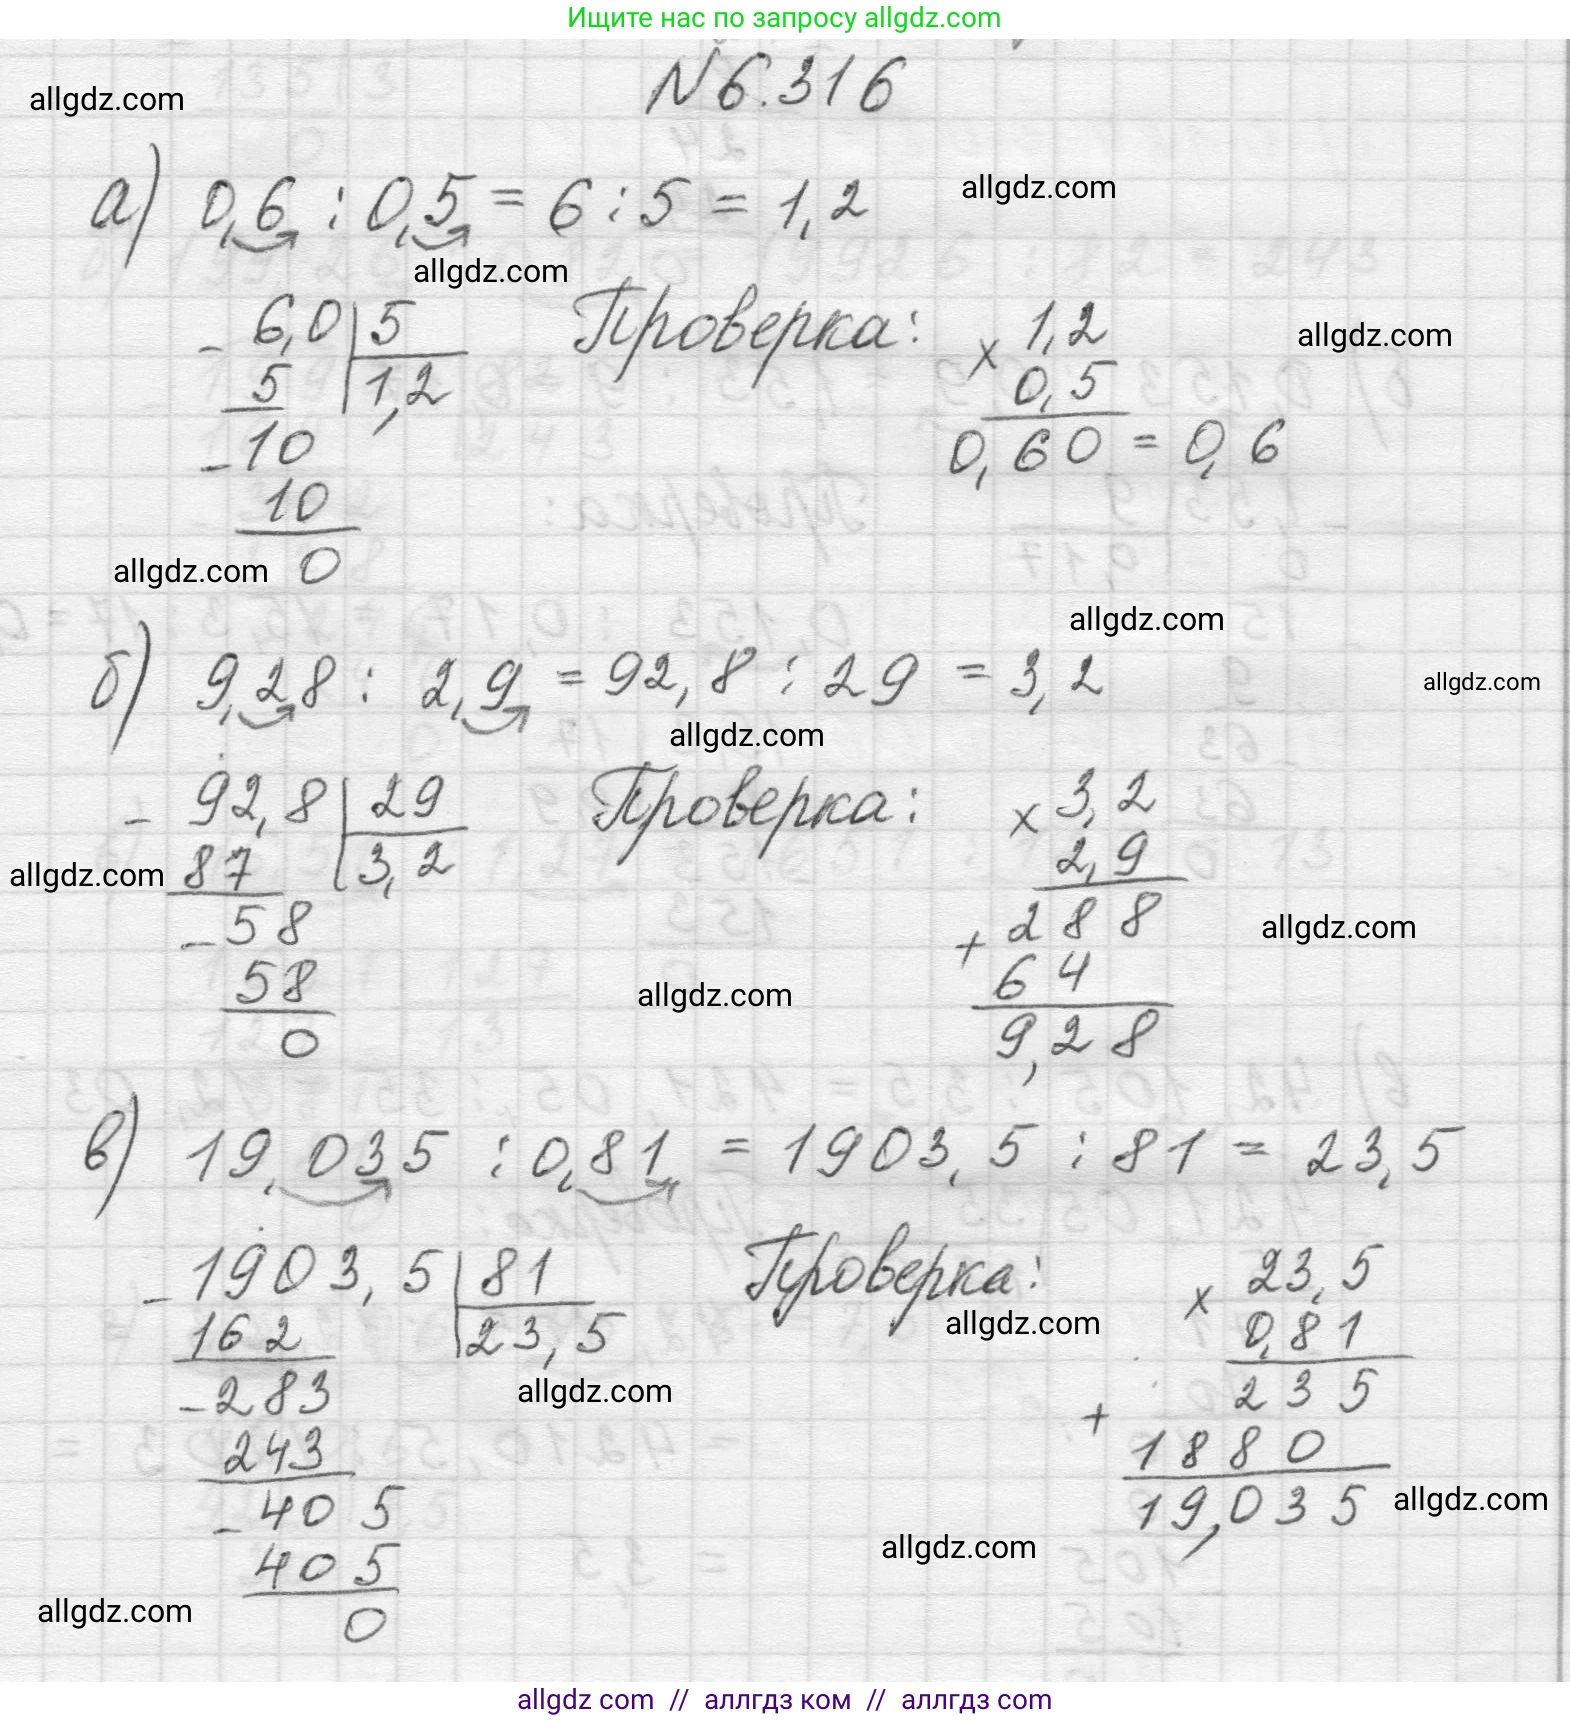 Ищите нас по запросу allgdz.com
N 6.316
allgdz.com
а) 0,6 : 0,5 = 6 : 5 = 1,2
allgdz.com
allgdz.com
- 6,0 | 5
5 | 1,2
- 10
10
0
Проверка:
× 1,2
0,5
0,60 = 0,6
allgdz.com
allgdz.com
allgdz.com
б) 9,28 : 2,9 = 92,8 : 29 = 3,2
allgdz.com
allgdz.com
- 92,8 | 29
87 | 3,2
- 58
58
0
Проверка:
× 3,2
2,9
288
+ 64
9,28
allgdz.com
allgdz.com
allgdz.com
в) 19,035 : 0,81 = 1903,5 : 81 = 23,5
- 1903,5 | 81
162 | 23,5
- 283
243
- 405
405
0
Проверка:
× 23,5
0,81
235
+ 1880
19,035
allgdz.com
allgdz.com
allgdz.com
allgdz.com
allgdz.com
allgdz com // аллгдз ком // аллгтдз com